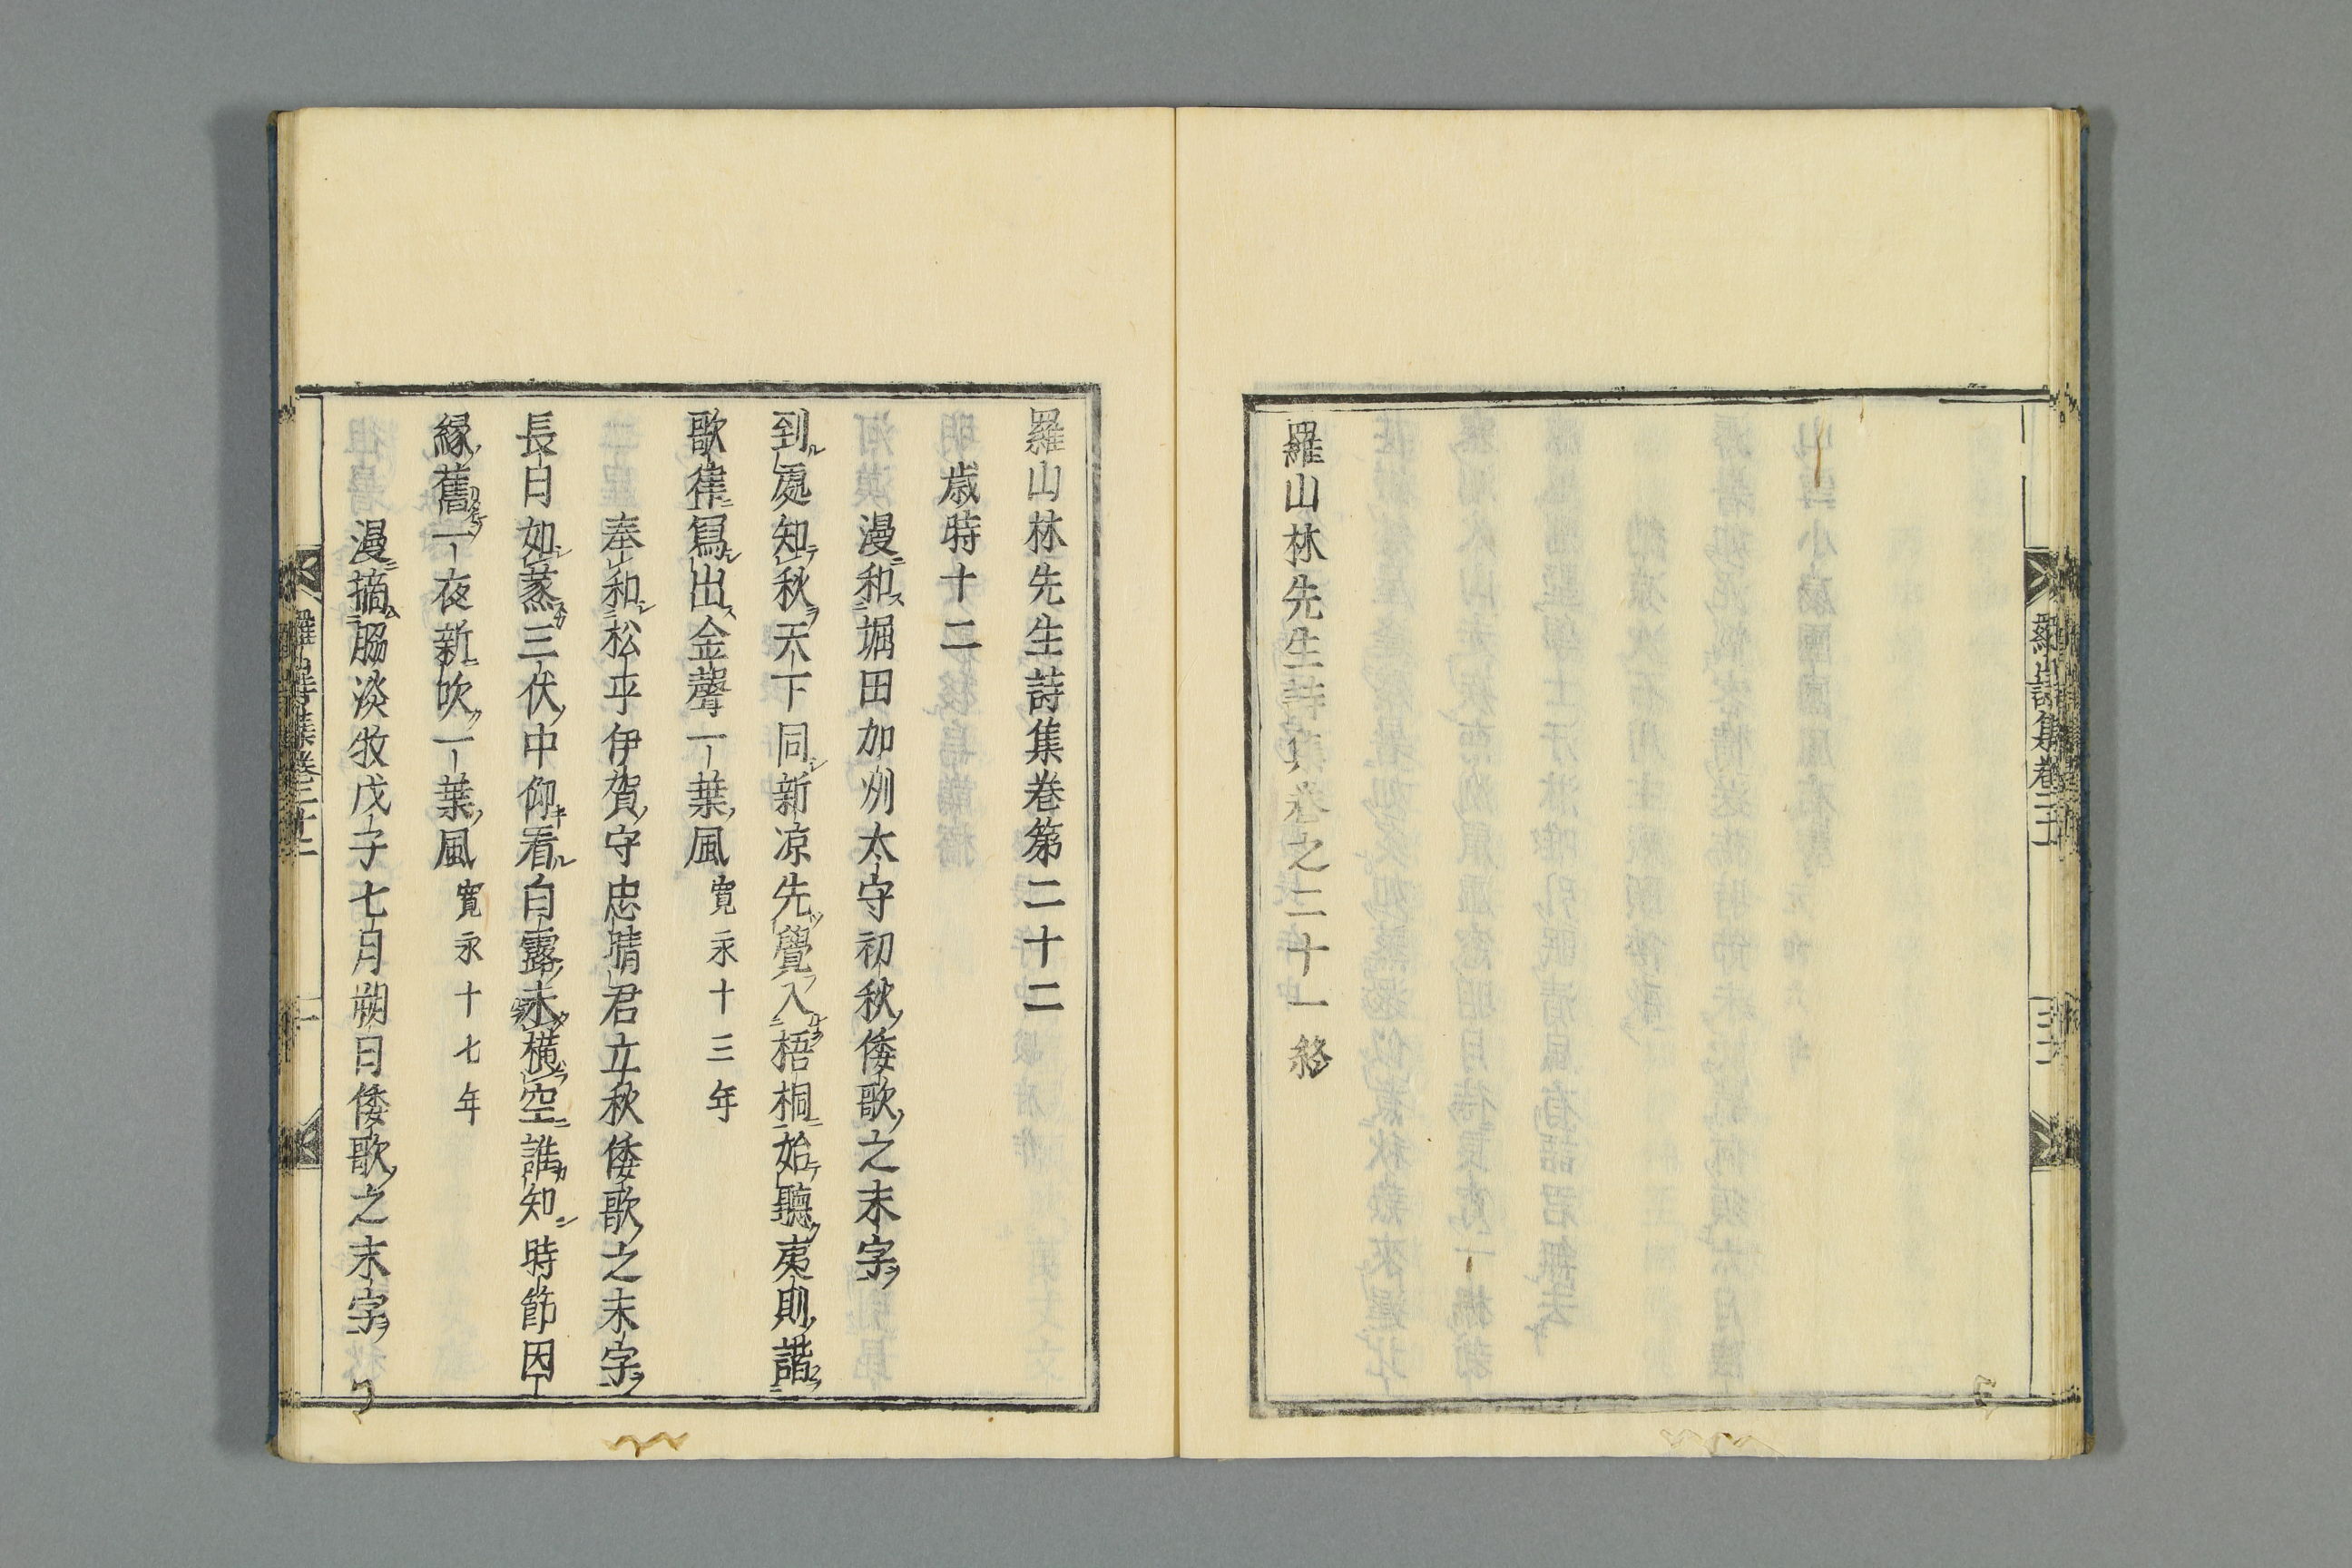 羅山林先生詩集卷之二十一終
羅山林先生詩集卷第二十二
歳時十二
漫和堀田加州太守初秋倭歌之末字
到處知秋天下同新凉先覺入梧桐始聽夷則諧
歌律寫出金聲一葉風寛永十三年
奉和松平伊賀守忠晴君立秋倭歌之末字
長日如蒸三伏中仰看白露未橫空誰知時節因
縁舊一夜新吹一葉風寛永十七年
漫摘脇淡牧戊子七月朔日倭歌之末字